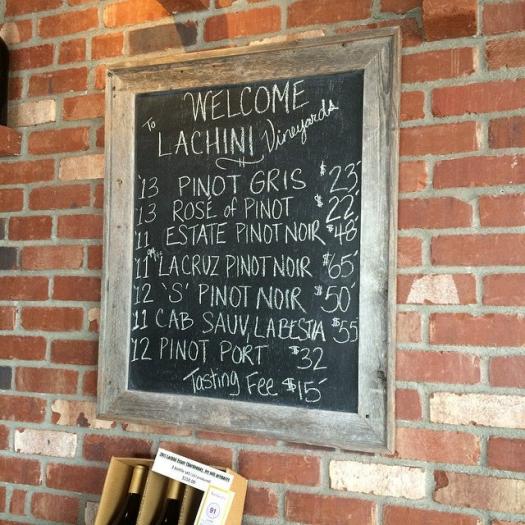 WELCOME
To
LACHINI Vineyards
'13 PINOT GRIS $23
'13 ROSÉ of PINOT $22
'11 ESTATE PINOT NOIR $48
'11 LA CRUZ PINOT NOIR $65
'12 'S' PINOT NOIR $50
'11 CAB SAUV, LA BESTIA $55
'12 PINOT PORT $32
Tasting Fee $15
91